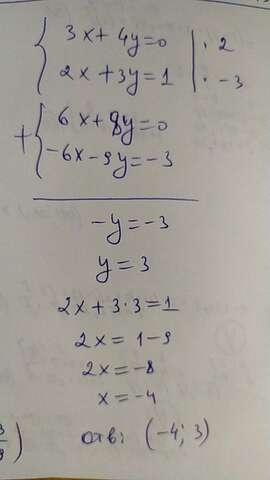 3x + 4y = 0 | · 2
2x + 3y = 1 | · -3
+ 6x + 8y = 0
-6x - 9y = -3
-y = -3
y = 3
2x + 3·3 = 1
2x = 1 - 9
2x = -8
x = -4
отв: (-4; 3)